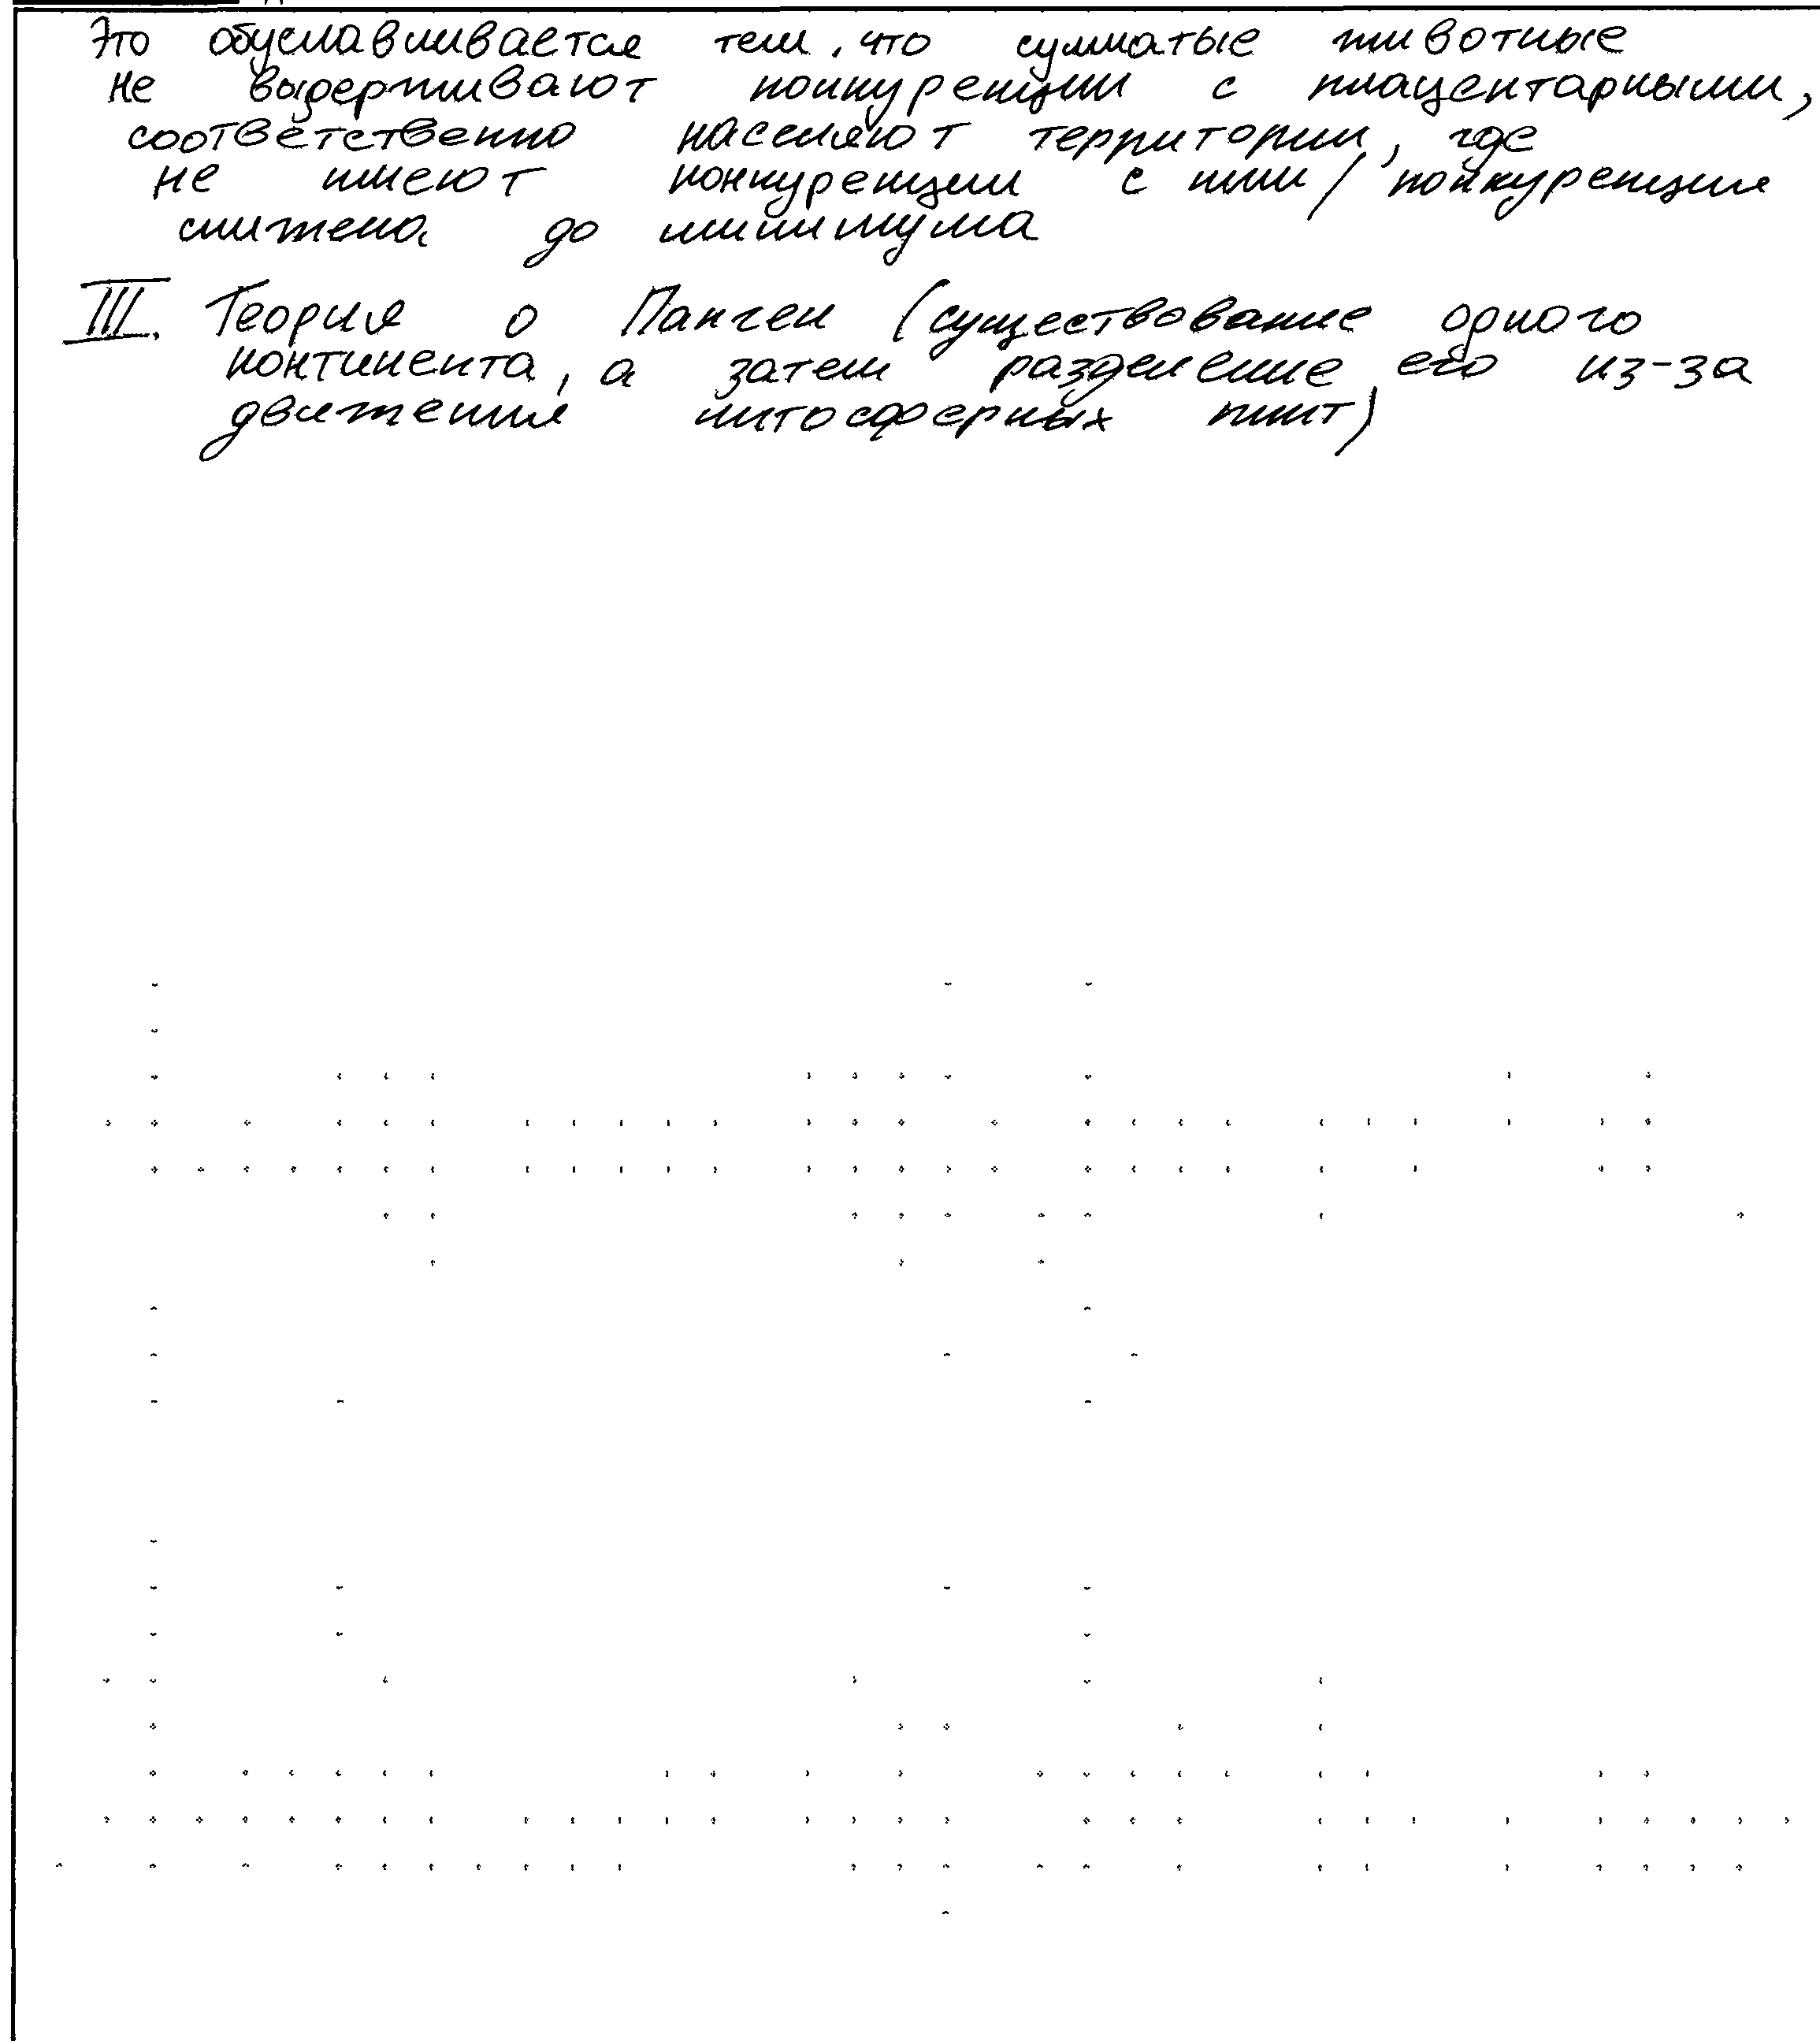 Это обуславливается тем, что сумчатые животные
не выдерживают конкуренции с плацентарными,
соответственно населяют территории, где
не имеют конкуренции с ними / конкуренция
снижена до минимума
III. Теория о Пангеи (существование одного
континента, а затем разделение его из-за
движения литосферных плит)